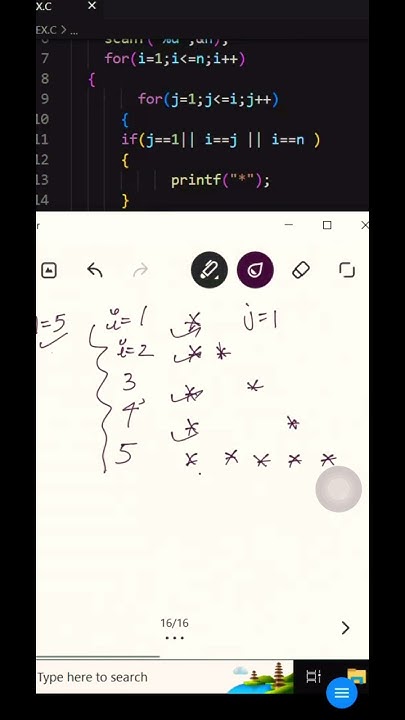 EX.C ×
EX.C > ...
6 scanf("%d",&n);
7 for(i=1;i<=n;i++)
8 {
9 for(j=1;j<=i;j++)
10 {
11 if(j==1|| i==j || i==n )
12 {
13 printf("*");
14 }
=5 i=1 * j=1
i=2 * *
3 * *
4 * *
5 * * * * *
16/16
Type here to search